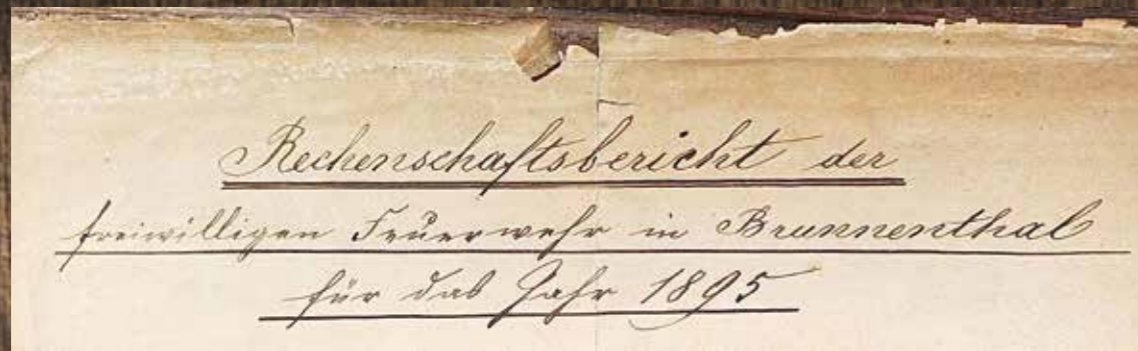 Rechenschaftsbericht der
freiwilligen Feuerwehr in Brunnenthal
für das Jahr 1895